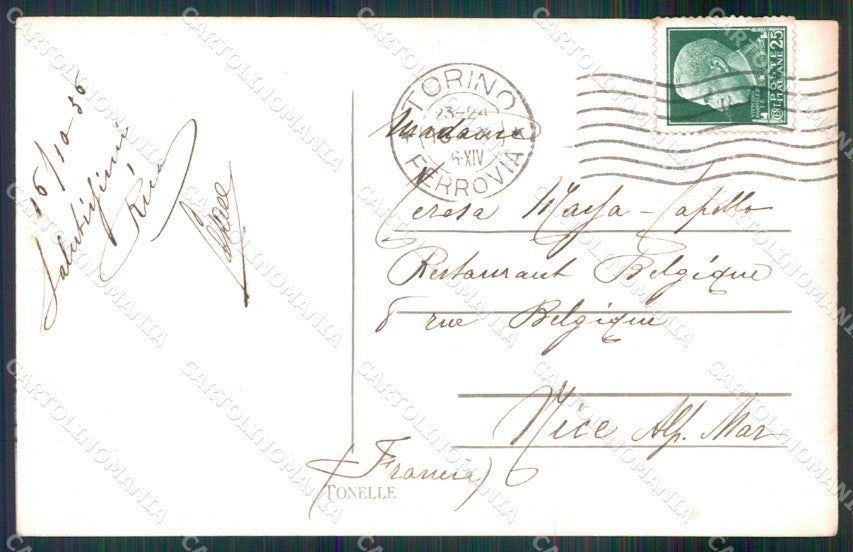 16/10-36
Salutissimi
TORINO
23-24
FERROVIA
POSTE ITALIANE
CENT 25
Madame
Teresa Massa-Capello
Restaurant Belgique
8 rue Belgique
Nice Alp. Mar
(Francia)
TONELLE
CARTOLINOMANIA